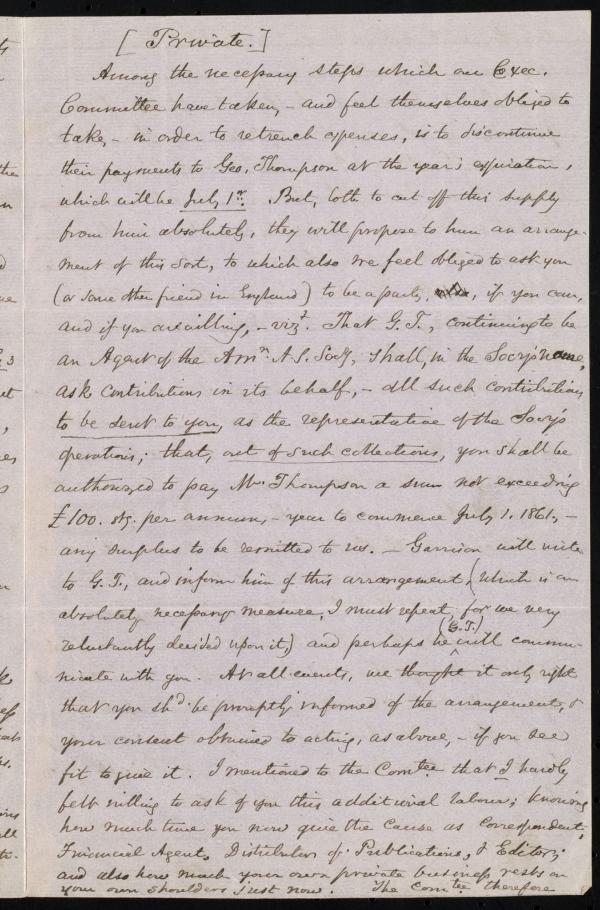 [Private.]
Among the necessary steps which our Exec.
Committee have taken, - and feel themselves obliged to
take, - in order to retrench expenses, is to discontinue
their payments to Geo. Thompson at the year's expiration,
which will be July 1st. But, loth to cut off this supply
from him absolutely, they will propose to him an arrange-
ment of this sort, to which also we feel obliged to ask you
(or some other friend in England) to be a party, if you can,
and if you are willing, - vizt. That G. T., continuing to be
an Agent of the Amn. A. S. Socy, shall, in the Socy's name,
ask contributions in its behalf, - all such contributions
to be sent to you, as the representative of the Socy's
operations; that, out of such collections, you shall be
authorized to pay Mr. Thompson a sum not exceeding
£100. stg. per annum, - year to commence July 1. 1861, -
any surplus to be remitted to us. - Garrison will write
to G. T., and inform him of this arrangement, (which is an
absolutely necessary measure, I must repeat, for we very
reluctantly decided upon it,) and perhaps he (G. T.) will commu-
nicate with you. At all events, we thought it only right
that you shd. be promptly informed of the arrangement, &
your consent obtained to acting, as above, - if you see
fit to give it. I mentioned to the Comtee that I hardly
felt willing to ask of you this additional labour; knowing
how much time you now give the Cause as Correspondent,
Financial Agent, Distributor of Publications, & Editor;
and also how much your own private business rests on
your own shoulders just now. The Comtee therefore